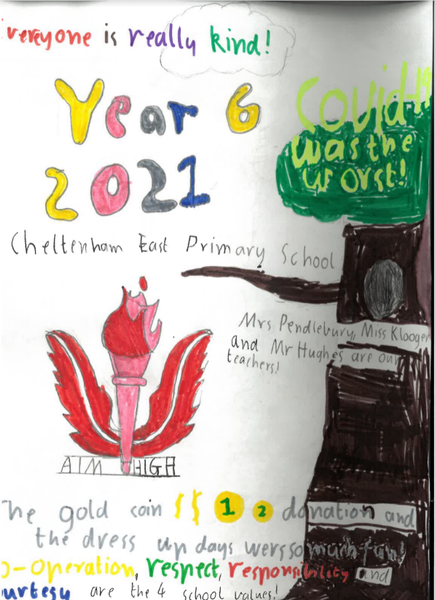 vereyone is really kind!
Year 6
2021
Covid-1
was the
worst!
Cheltenham East Primary School
Mrs Pendlebury, Miss Klooger
and Mr Hughes are our
teachers!
AIM HIGH
he gold coin $$ 1 2 donation and
the dress up days wers so much fun!
o-operation, respect, responsibility and
urtesy are the 4 school values!